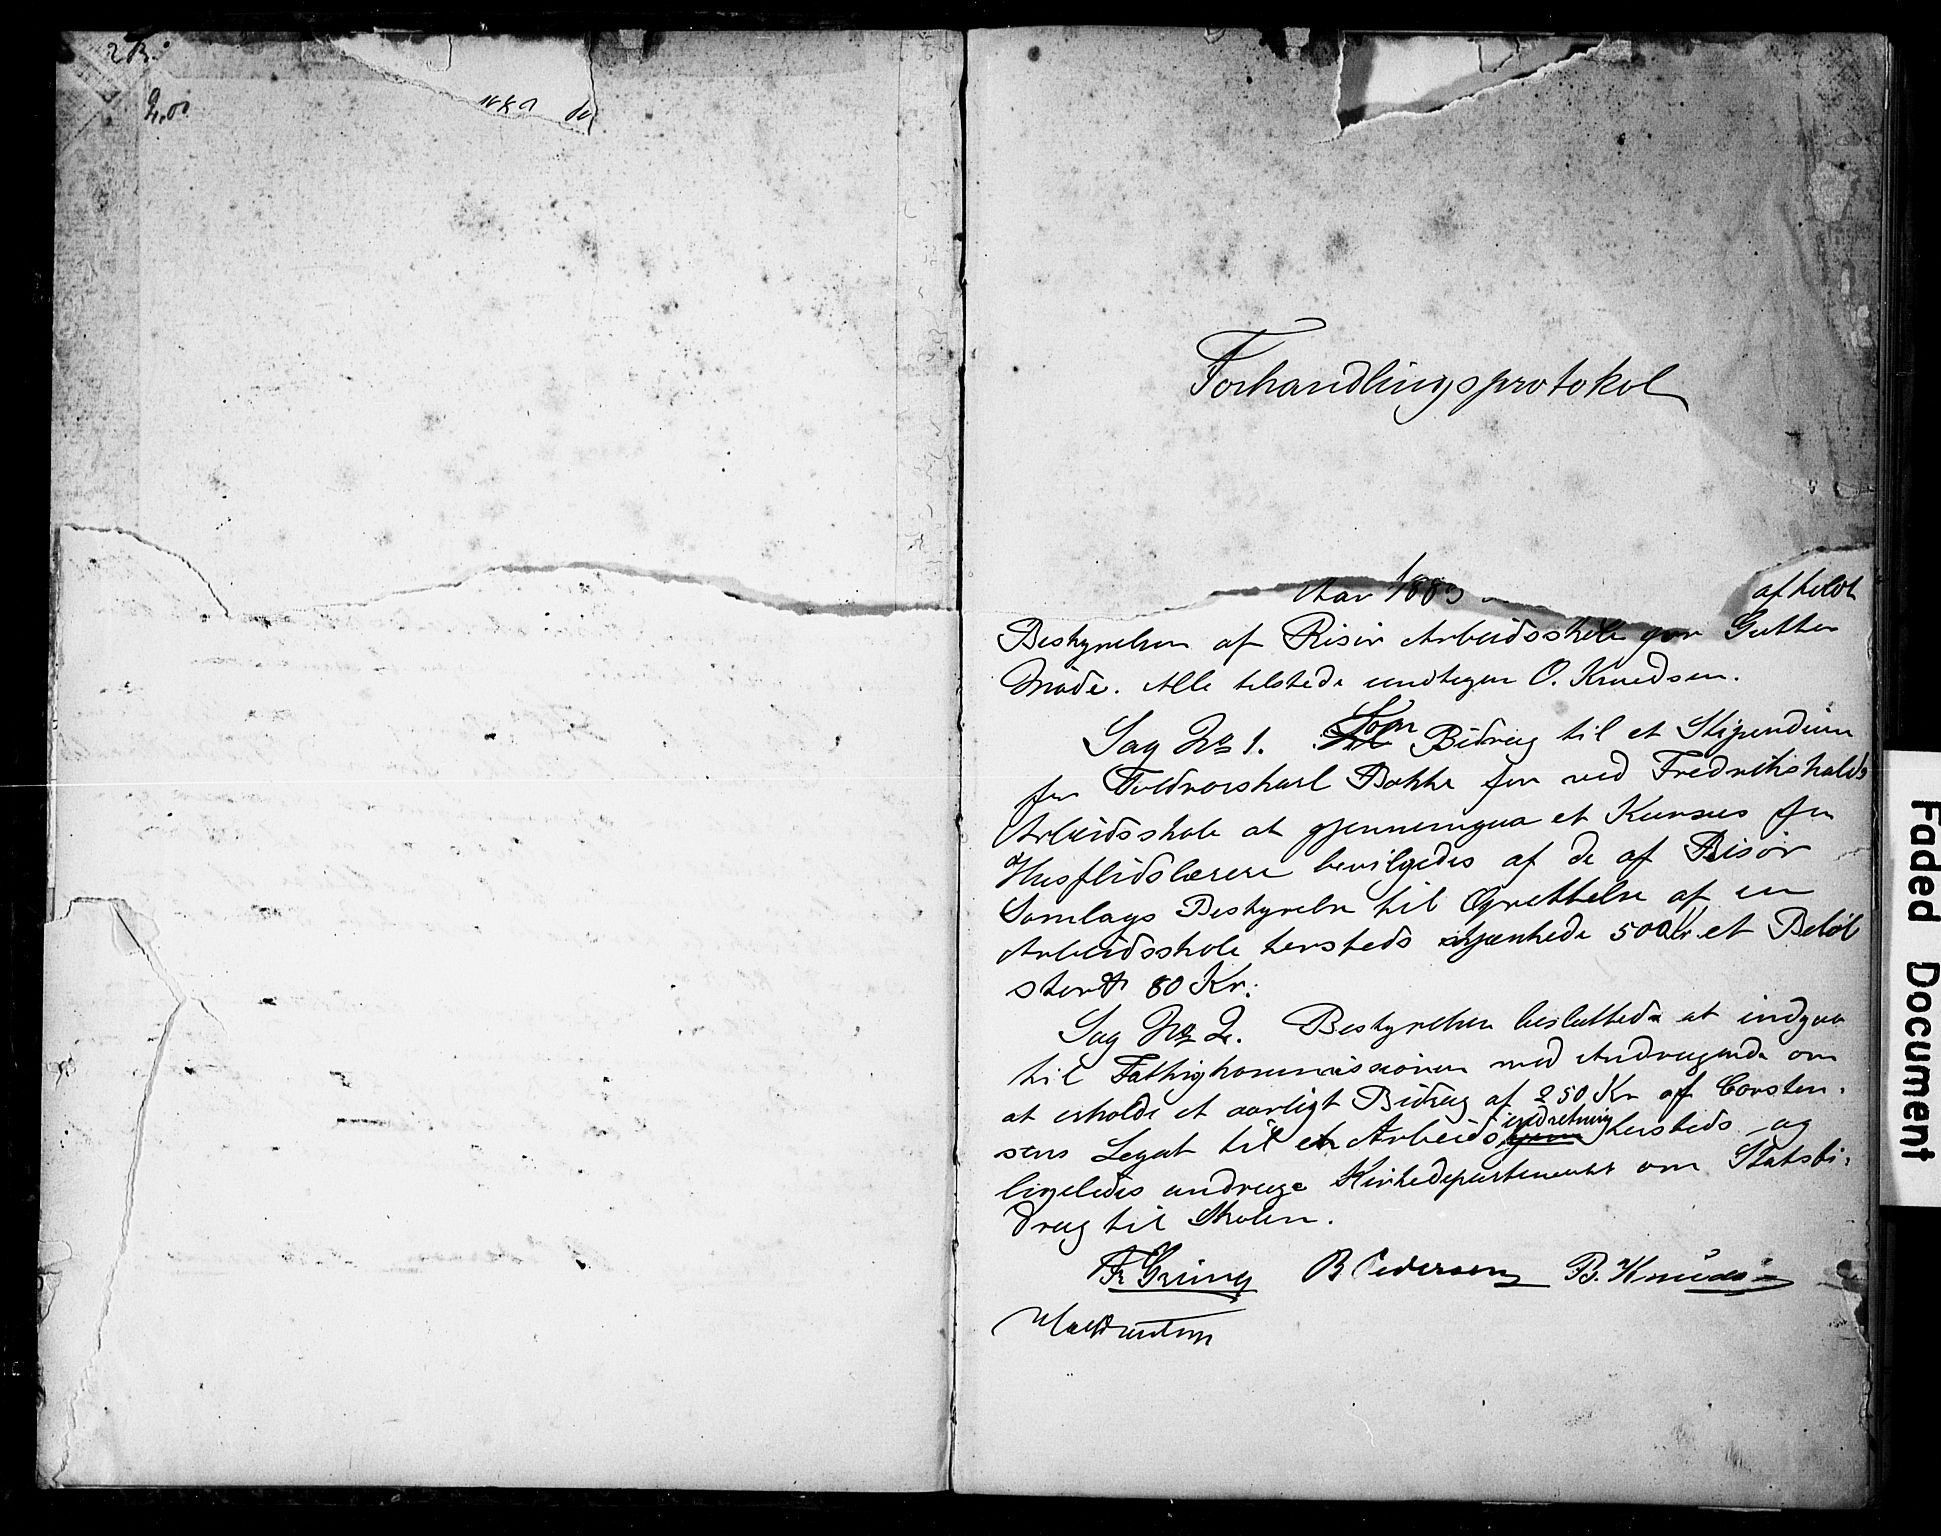 2 B.
2,00
Forhandlingsprotokol
Aar 1883 afholdt
Bestyrelsen af Risør Arbeidsskole for Gutter
Møde. Alle tilstede undtagen O. Knudsen.
Sag No 1. Som Bidrag til et Stipendium
for Toldroerskarl Bakke for ved Fredrikshalds
Arbeidsskole at gjennemgaa et Kursus for
Husflidslærere bevilgedes af de af Risør
Samlags Bestyrelse til Oprettelse af en
Arbeidsskole hersteds skjænkede 500 Kr. et Beløb
stort 80 Kr.
Sag No 2. Bestyrelsen besluttede at indgaa
til Fattigkommissionen med Andragende om
at erholde et aarligt Bidrag af 250 Kr af Corsten-
sens Legat til en Arbeidsindretning hersteds og
ligeledes andrage Kirkedepartementet om Statsbi-
drag til Skolen.
Fr Grüning B Pedersen B. Knudsen
Faded Document